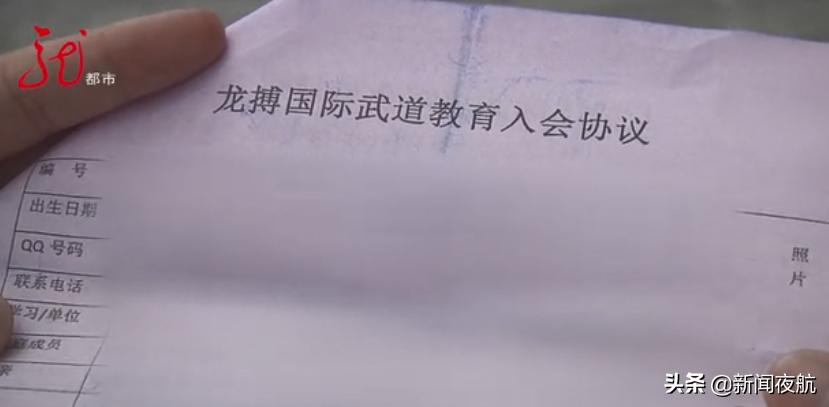 龙都市
龙搏国际武道教育入会协议
编 号
出生日期
QQ 号码
联系电话
学习/单位
庭成员
亲
照
片
头条 @新闻夜航